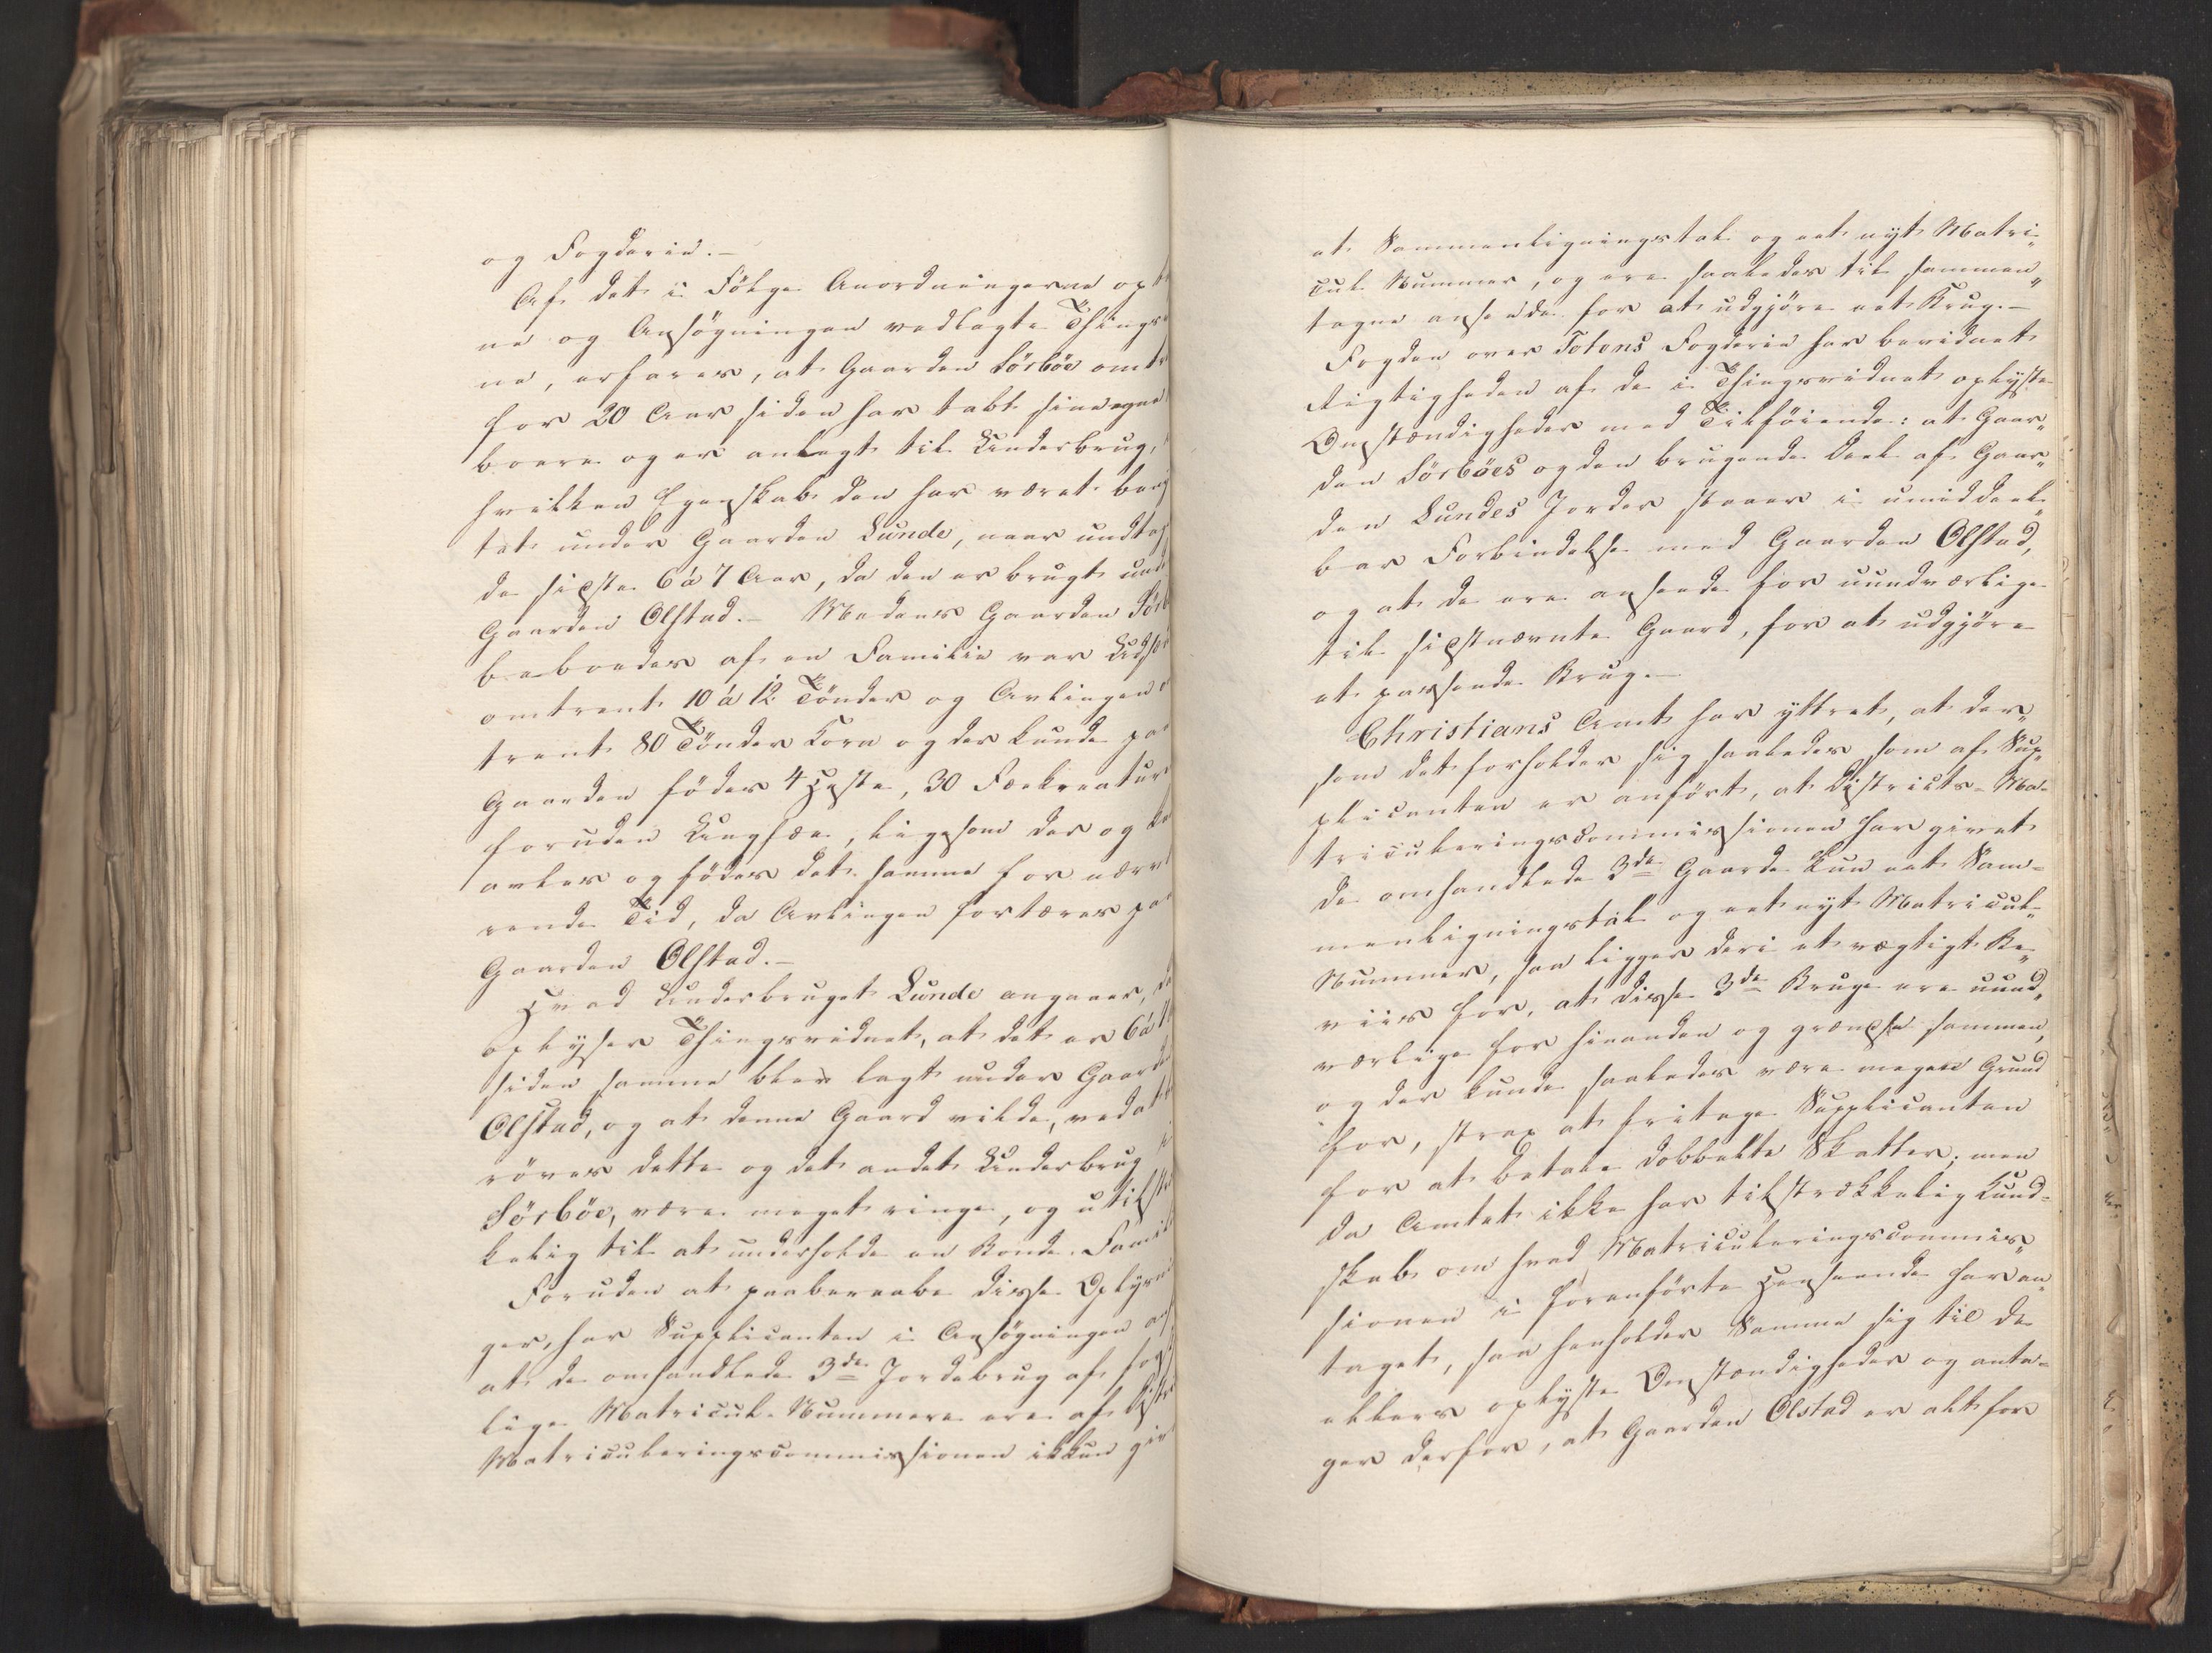 og Fogderie.-
Af det i Følge Anordningerne op
ne og Ansøgningen vedlagte Things
ne, erfares, at Gaarden Sörböe omtr
for 20 Aar siden har tabt sine egne
boere og er anlagt til Underbrug,
hvilken Egenskab den har været beny
tet under Gaarden Lunde, naar undtag
de sidste 6 à 7 Aar, da den er brugt und
Gaarden Olstad.- Medens Gaarden Sörb
beboedes af en Familie var Udsæ
omtrent 10 à 12 Tönder og Avlingen o
trent 80 Tönder Korn og der kunde paa
Gaarden födes 4 Heste, 30 Fækreature
foruden Ungfæe, ligesom der og
avles og födes det samme for nærv
rende Tid, da Avlingen fortæres paa
Gaarden Olstad.-
Hvad Underbruget Lunde angaaer, da
oplyser Thingsvidnet, at det er 6 à
siden samme blev lagt under Gaarde
Olstad, og at denne Gaard vilde, ved at
röves dette og det andet Underbrug
Sörböe, være meget ringe, og utilstr
kelig til at underholde en Bonde-Famil
Foruden at paaberaabe disse Oplysni
ger, har Supplicanten i Ansögningen an
at de omhandlede 3de Jordebrug af
lige Matricul-Nummere ere af Distri
Matriculeringscommissionen ikkun giv
et Sammenligningstal og eet nyt Matri„
cul Nummer, og ere saaledes til sammen„
tagne ansende for at udgjöre eet Brug.-
Fogden over Totens Fogderie har bevidnet
Rigtigheden af de i Thingsvidnet oplyste
Omstændigheder med Tilföiende: at Gaar„
den Sörböes og den brugende Deel af Gaar„
den Lundes Jorder staaer i umiddel„
bar Forbindelse med Gaarden Olstad,
og at de ere ansende for uundværlige
til sidstnævnte Gaard, for at udgjöre
et passende Brug.-
Christians Amt har yttret, at der„
som det forholder sig saaledes som af Sup„
plicanten er anført, at Districts-Ma-
triculeringscommissionen har givet
de omhandlede 3de Gaarde kun eet Sam-
menligningstal og eet nyt Matricul-
Nummer, saa ligger deri et vægtigt Be„
viis for, at disse 3de Bruge ere uund„
værlige for hinanden og grændse sammen,
og der kunde saaledes være megen Grund
for, strax at fritage Supplicanten
for at betale dobbelte Skatter; men
da Amtet ikke har tilstrækkelig Kund-
skab om hvad Matriculeringscommis„
sionen i foranførte Henseende har an„
taget, saa henholder Samme sig til de
ellers oplyste Omstændigheder og anta-
ger derfor, at Gaarden Olstad er alt for